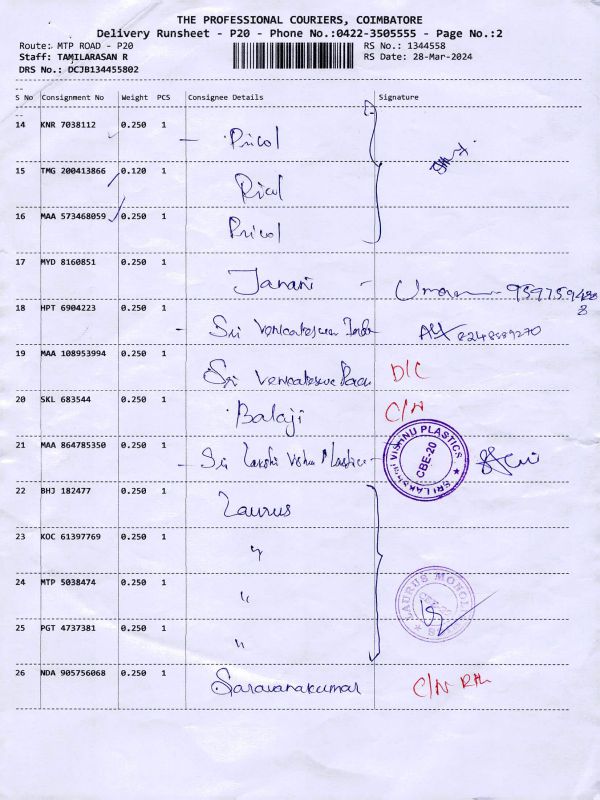 THE PROFESSIONAL COURIERS, COIMBATORE
Delivery Runsheet - P20 - Phone No.:0422-3505555 - Page No.:2
Route: MTP ROAD - P20 RS No.: 1344558
Staff: TAMILARASAN R RS Date: 28-Mar-2024
DRS No.: DCJB134455802
S No Consignment No Weight PCS Consignee Details Signature
14 KNR 7038112 0.250 1
Pricol
15 TMG 200413866 0.120 1
Ricol
16 MAA 573468059 0.250 1
Pricol
17 MYD 8160851 0.250 1
Janani
18 HPT 6904223 0.250 1
Sri Venkateswara 8248589270
19 MAA 108953994 0.250 1
Sri Venkateswara D/C
20 SKL 683544 0.250 1
Balaji C/N
21 MAA 864785350 0.250 1
Sri Lakshi Vishnu Plastics
SRI LAKSHMI VISHNU PLASTICS CBE-20
22 BHJ 182477 0.250 1
Laurus
23 KOC 61397769 0.250 1
〃
24 MTP 5038474 0.250 1
〃
LAURUS
25 PGT 4737381 0.250 1
〃
26 NDA 905756068 0.250 1
Saravanakumar C/N